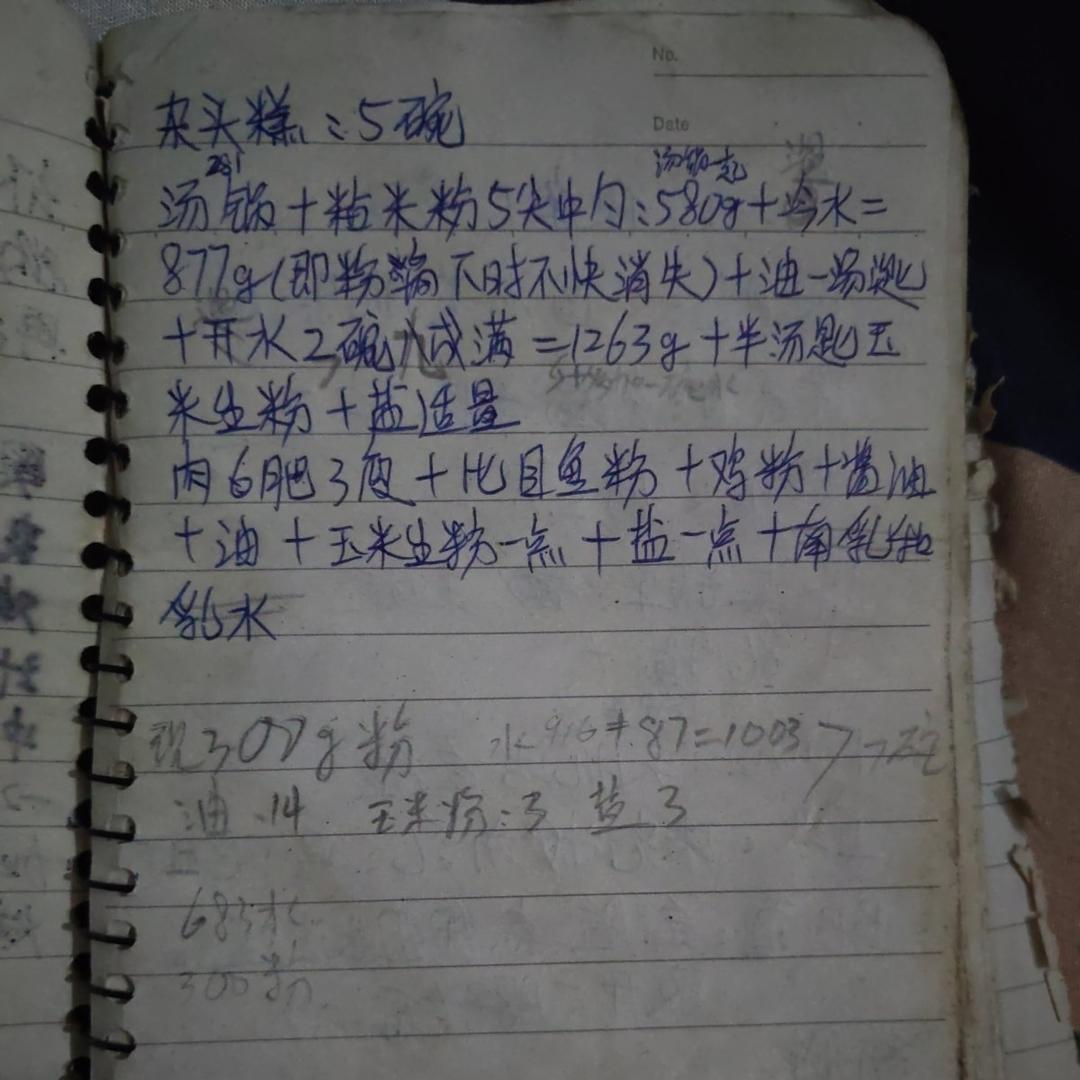 No.
Date
朩头糕:5碗
281 汤锅一起
汤锅+粘米粉5尖中勺:580g+冷水=
877g(即粉瀹下时不快消失)+油一汤匙
+开水2碗八成满=1263g+半汤匙玉
米生粉+盐适量
肉6肥3瘦+比目鱼粉+鸡粉+酱油
+油+玉米生粉一点+盐一点+南乳
乳水
现300g粉 水916+87=1003
油.14 玉米粉:3 盐3
683水
300粉